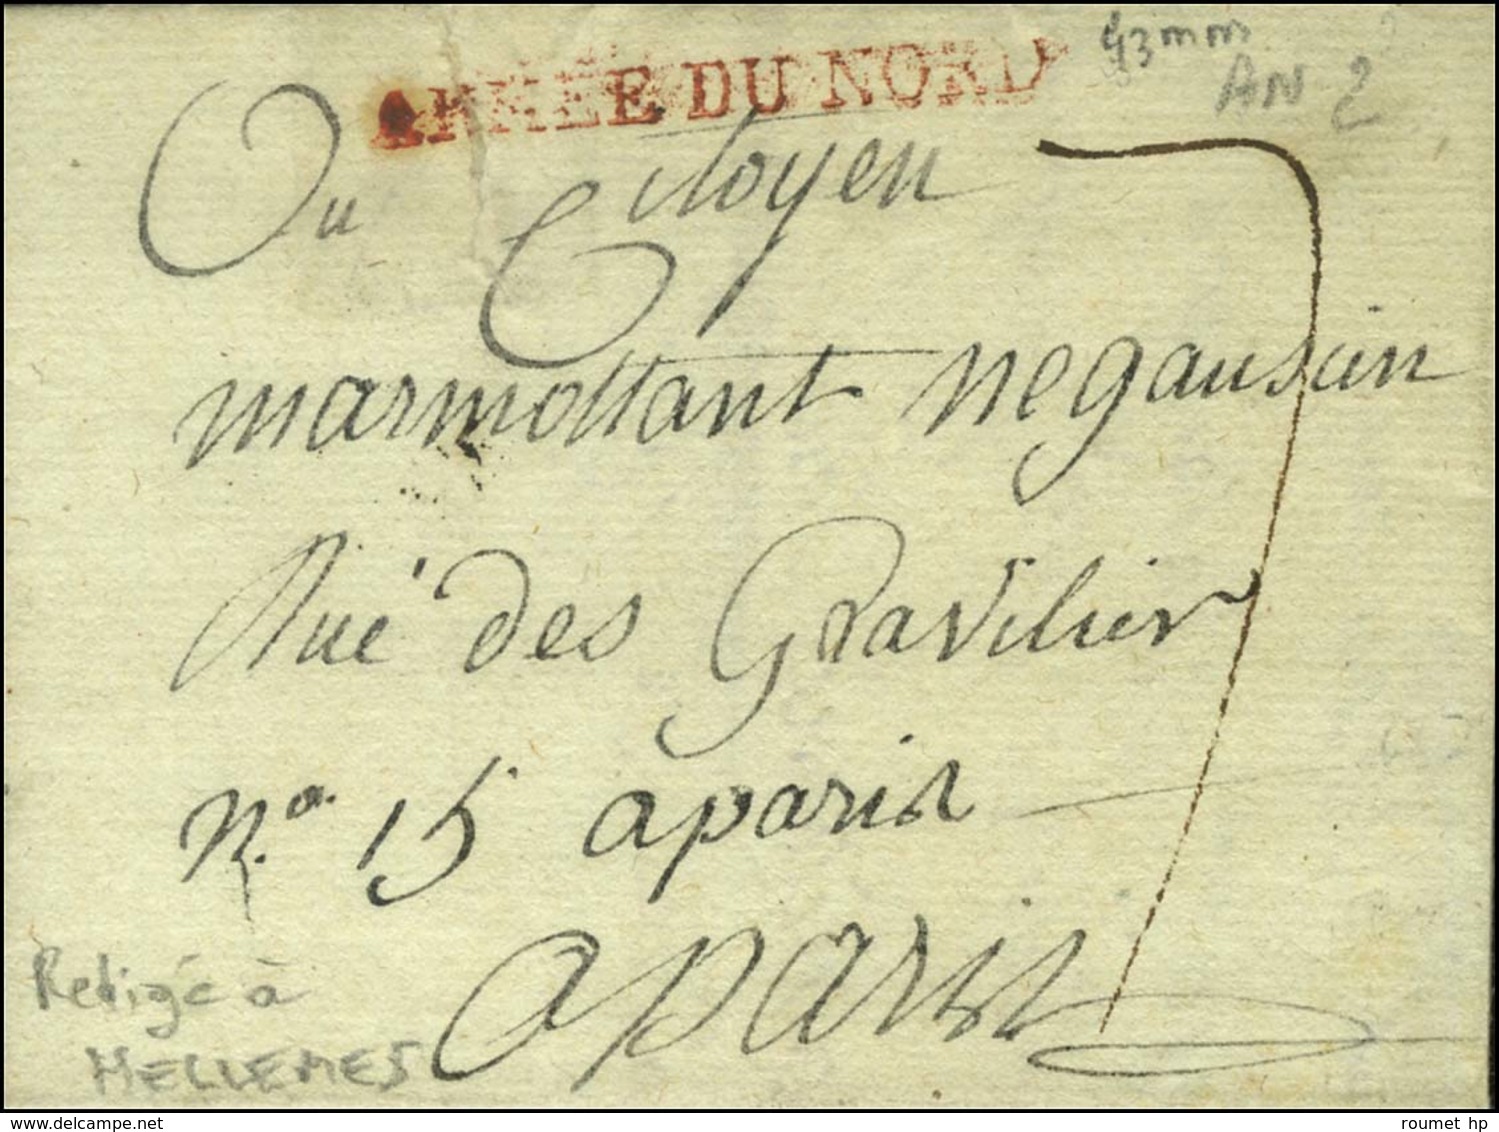 ARMÉE DU NORD
43 mm
AN 2
Ou Citoyen
marmottant negausien
Rué des Gravilier
No. 15 aparis
aparis
Redigé à
HELLEMES
roumet hp